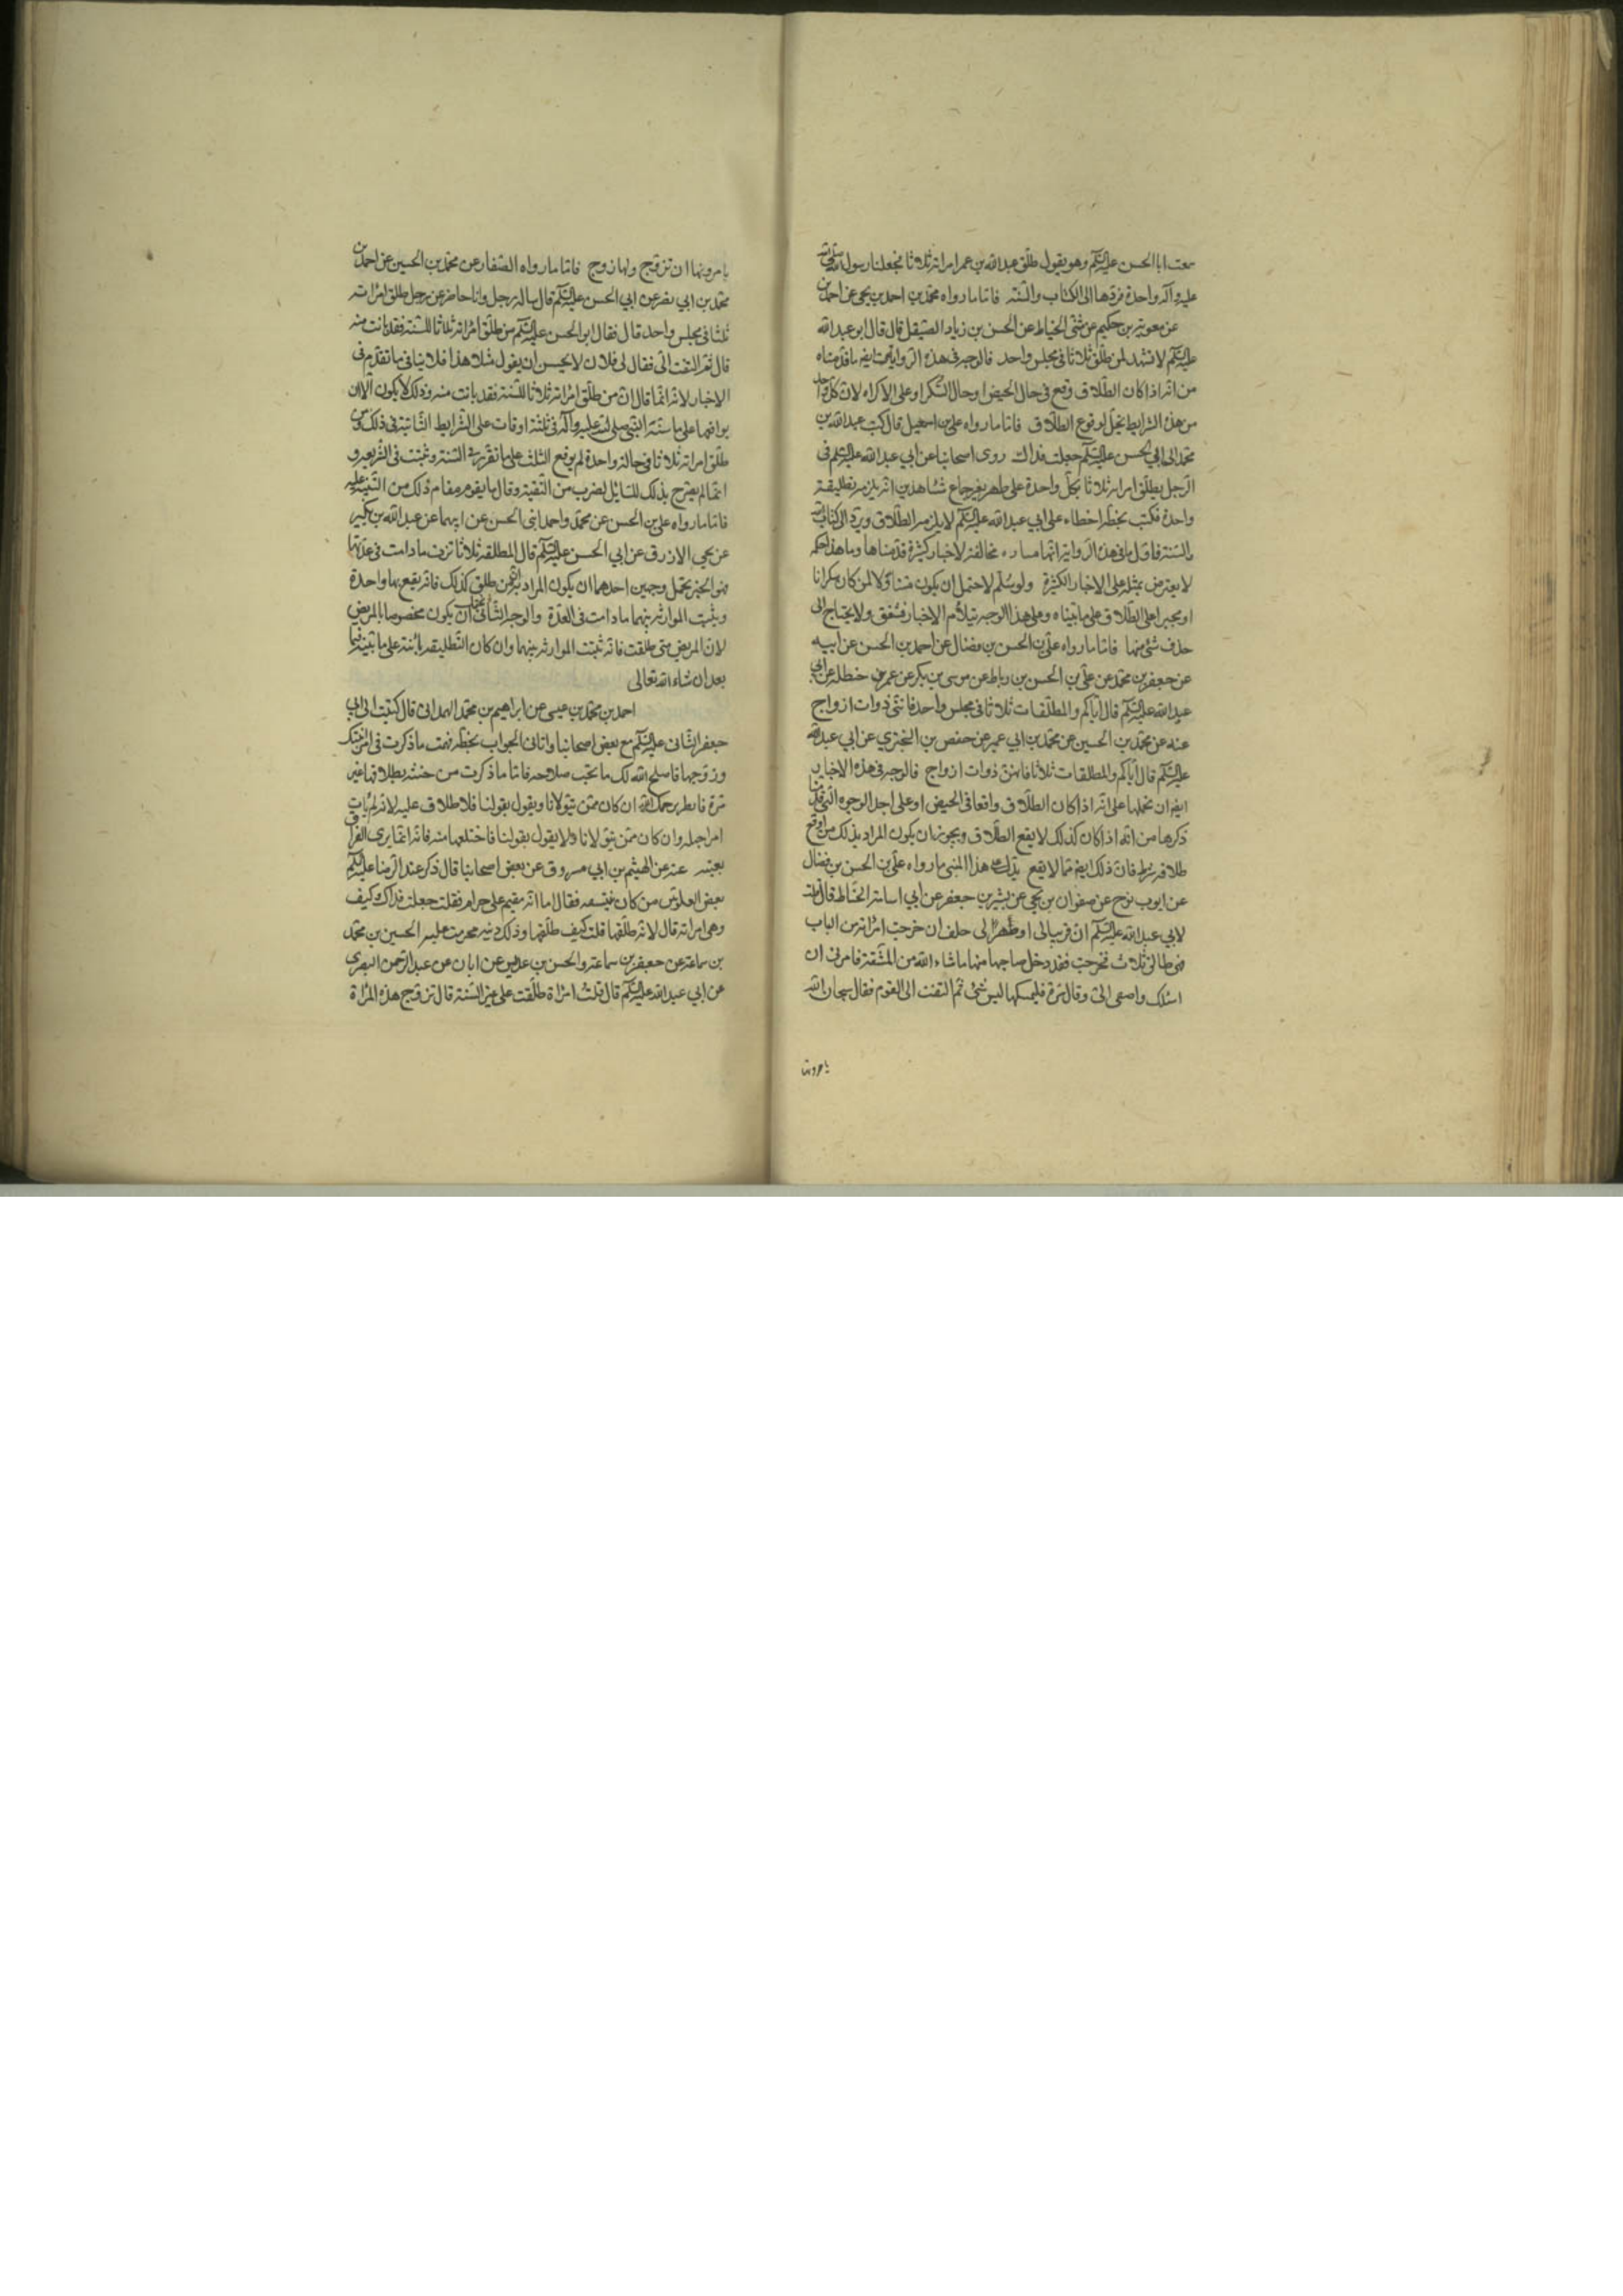 سمعت ابا الحسن عليه السلم وهو يقول طلق عبدالله بن عمر امراته ثلاثا فجعلها رسول الله صلى الله
عليه وآله واحدة فردها الى الكتاب والسنة فاما ما رواه محمد بن احمد بن يحيى عن احمد بن
عن معوية بن حكيم عن مثنى الحناط عن الحسن بن زياد الصيقل قال قال ابو عبدالله
عليه السلم لا تشهد لمن طلق ثلاثا في مجلس واحد فالوجه في هذه الرواية ايضا ما قدمناه
من انه اذا كان الطلاق وقع في حال الحيض او حال السكر او على الاكراه لان كل واحد
من هذه الشرايط يخل لوقوع الطلاق فاما ما رواه علي بن اسمعيل قال كتب عبدالله بن
محمد الى ابي الحسن عليه السلم جعلت فداك روى اصحابنا عن ابي عبدالله عليه السلم في
الرجل يطلق امراته ثلاثا بكلمة واحدة على طهر بغير جماع بشاهدين انه يلزمه تطليقة
واحدة فكتب بخطه اخطاء على ابي عبدالله عليه السلم لا يلزمه الطلاق ويرد الى الكتاب
والسنة فاول ما في هذه الرواية انها مخالفة لاخبار كثيرة قدمناها وما هذا حكمه
لا يعترض بمثله على الاخبار الكثيرة ولو سلم لاحتمل ان يكون متناولا لمن كان سكرانا
او مجبرا على الطلاق على ما بيناه وعلى هذا الوجه تتلاءم الاخبار وتتفق ولا يحتاج الى
حذف شئ منها فاما ما رواه علي بن الحسن بن فضال عن احمد بن الحسن عن ابيه
عن جعفر بن محمد عن علي بن الحسن بن رباط عن موسى بن بكر عن عمر بن حنظلة عن ابي
عبدالله عليه السلم قال اياكم والمطلقات ثلاثا في مجلس واحد فانهن ذوات ازواج
عنه عن محمد بن الحسين عن محمد بن ابي عمير عن حفص بن البختري عن ابي عبدالله
عليه السلم قال اياكم والمطلقات ثلاثا فانهن ذوات ازواج فالوجه في هذه الاخبار
ايضا ان نحملها على انه اذا كان الطلاق واقعا في الحيض او على احد الوجوه التي قدمنا
ذكرها من انه اذا كان كذلك لا يقع الطلاق ويجوز ان يكون المراد بذلك من اوقع
طلاقه بشرط فان ذلك ايضا مما لا يقع يدل على هذا المعنى ما رواه علي بن الحسن بن فضال
عن ايوب بن نوح عن صفوان بن يحيى عن بشير بن جعفر عن ابي اسامة الحناط قال قلت
لابي عبدالله عليه السلم ان قريبا لي او صهرا لي حلف ان خرجت امراته من الباب
فهي طالق ثلاث فخرجت فقد دخل صاحبها منها ما شاء الله من المشقة فامرني ان
اسئلك واصغى الي وقال مره فليمسكها ليس شئ ثم التفت الى القوم فقال سبحان الله
يامرونها
يامرونها ان تزوج ولها زوج فاما ما رواه الصفار عن محمد بن الحسين عن احمد بن
محمد بن ابي نصر عن ابي الحسن عليه السلم قال ساله رجل وانا حاضر عن رجل طلق امراته
ثلثا في مجلس واحد قال فقال ابو الحسن عليه السلم من طلق امراته ثلاثا للسنة فقد بانت منه
قال ثم التفت الي فقال لي فلان لا يحسن ان يقول مثل هذا فلا ينافي ما تقدم في
الاخبار لانه انما قال ان من طلق امراته ثلاثا للسنة فقد بانت منه وذلك لا يكون الا ان
يوافقها على ما سنه النبي صلى الله عليه وآله في ثلثة اوقات على الشرايط الثابتة في ذلك ومن
طلق امراته ثلاثا في حالة واحدة لم يوقع الثلث على ما تقرر في السنة وثبتت في الشريعة و
انما لم يصرح بذلك للسايل لضرب من التقية وقال ما يقوم مقام ذلك من التنبيه عليه
فاما ما رواه علي بن الحسن عن محمد واحمد ابني الحسن عن ابيهما عن عبدالله بن بكير
عن يحيى الازرق عن ابي الحسن عليه السلم قال المطلقة ثلاثا ترث ما دامت في عدتها
فهو الخبر يحتمل وجهين احدهما ان يكون المراد به من طلق كذلك فانه يقع بها واحدة
ويثبت الموارثة بينهما ما دامت في العدة والوجه الثاني ان يكون مخصوصا بالمريض
لان المريض متى طلقت فانه تثبت الموارثة بينهما وان كان التطليقة بائنة على ما نبينه فيما
بعد ان شاء الله تعالى
احمد بن محمد بن عيسى عن ابراهيم بن محمد الهمداني قال كتبت الى ابي
جعفر الثاني عليه السلم مع بعض اصحابنا واتاني الجواب بخطه فهمت ما ذكرت في امر ابنتك
وزوجها فاصلح الله لك ما تحب صلاحه فاما ما ذكرت من حنثه بطلاقها غير
مرة فانظر يرحمك الله ان كان ممن يتولانا ويقول بقولنا فلا طلاق عليه لانه لم يات
امرا جهله وان كان ممن لا يتولانا ولا يقول بقولنا فاختلعها منه فانه انما يرى الفراق
بعينه عنه عن الهيثم بن ابي مسروق عن بعض اصحابنا قال ذكر عند الرضا عليه السلم
بعض العلويين ممن كان ينتقصه فقال اما انه مقيم على حرام فقلت جعلت فداك وكيف
وهي امراته قال لانه طلقها قلت كيف طلقها وذلك دينه فحرمت عليه الحسين بن محمد
بن سماعة عن جعفر بن سماعة والحسن بن عديس عن ابان عن عبدالرحمن البصري
عن ابي عبدالله عليه السلم قال قلت امراة طلقت على غير السنة قال تزوج هذه المراة